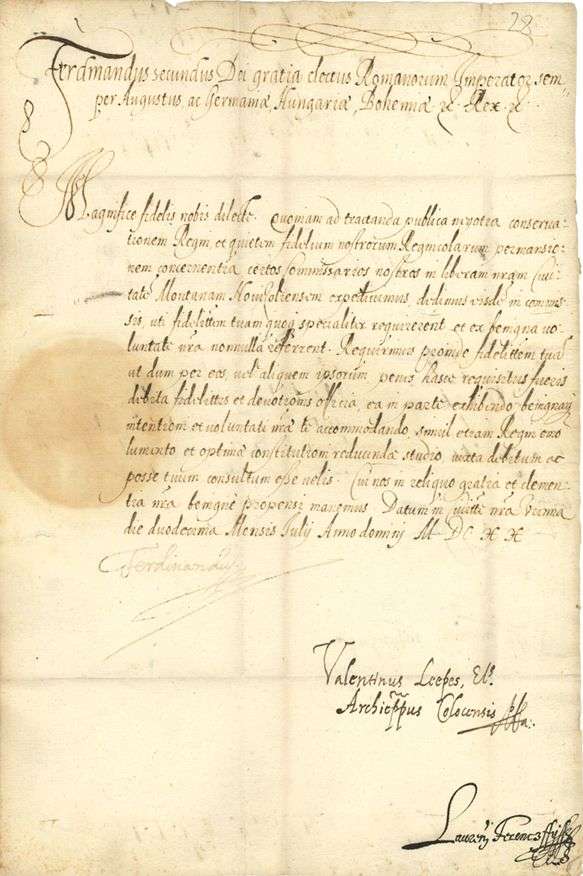 Ferdinandus secundus Dei gratia electus Romanorum Imperator sem-
per Augustus, ac Germaniæ, Hungariæ, Bohemiæ &c. Rex &c.
Magnifice fidelis nobis dilecte. Quoniam ad tractanda publica negotia conserua-
tionem Regni, et quietem fidelium nostrorum Regnicolarum permansio-
nem concernentia certos Commissarios nostros in liberam nrām Ciui-
tatē Montanam Nouizoliensem expediuimus, dedimus eisdē in commis-
sis, uti fidelittem tuam quoq; specialiter requirerent, et ex benigna uo-
luntate nrā nonnulla referrent. Requirimus proinde fidelittem tuā
ut dum per eos, uel aliquem ipsorum penes hasce requisitus fueris
debita fidelittis et deuotionis officia, ea in parte exhibendo benignæ
intentioni et voluntati nræ te accommodando, simul etiam Regni emo
lumento et optimæ constitutioni reducendæ studio, iuxta debitum ac
posse tuum consultum esse velis. Cui nos in reliquo gratia et clemen-
tia nrā benigne propensi manemus Datum in Ciuitte nrā Vienna
die duodecima Mensis Iulij Anno domini M DC XX
Ferdinandus
Valentinus Leepes, Els.
Archieppus Colocensis
Laurentj Ferenczffy